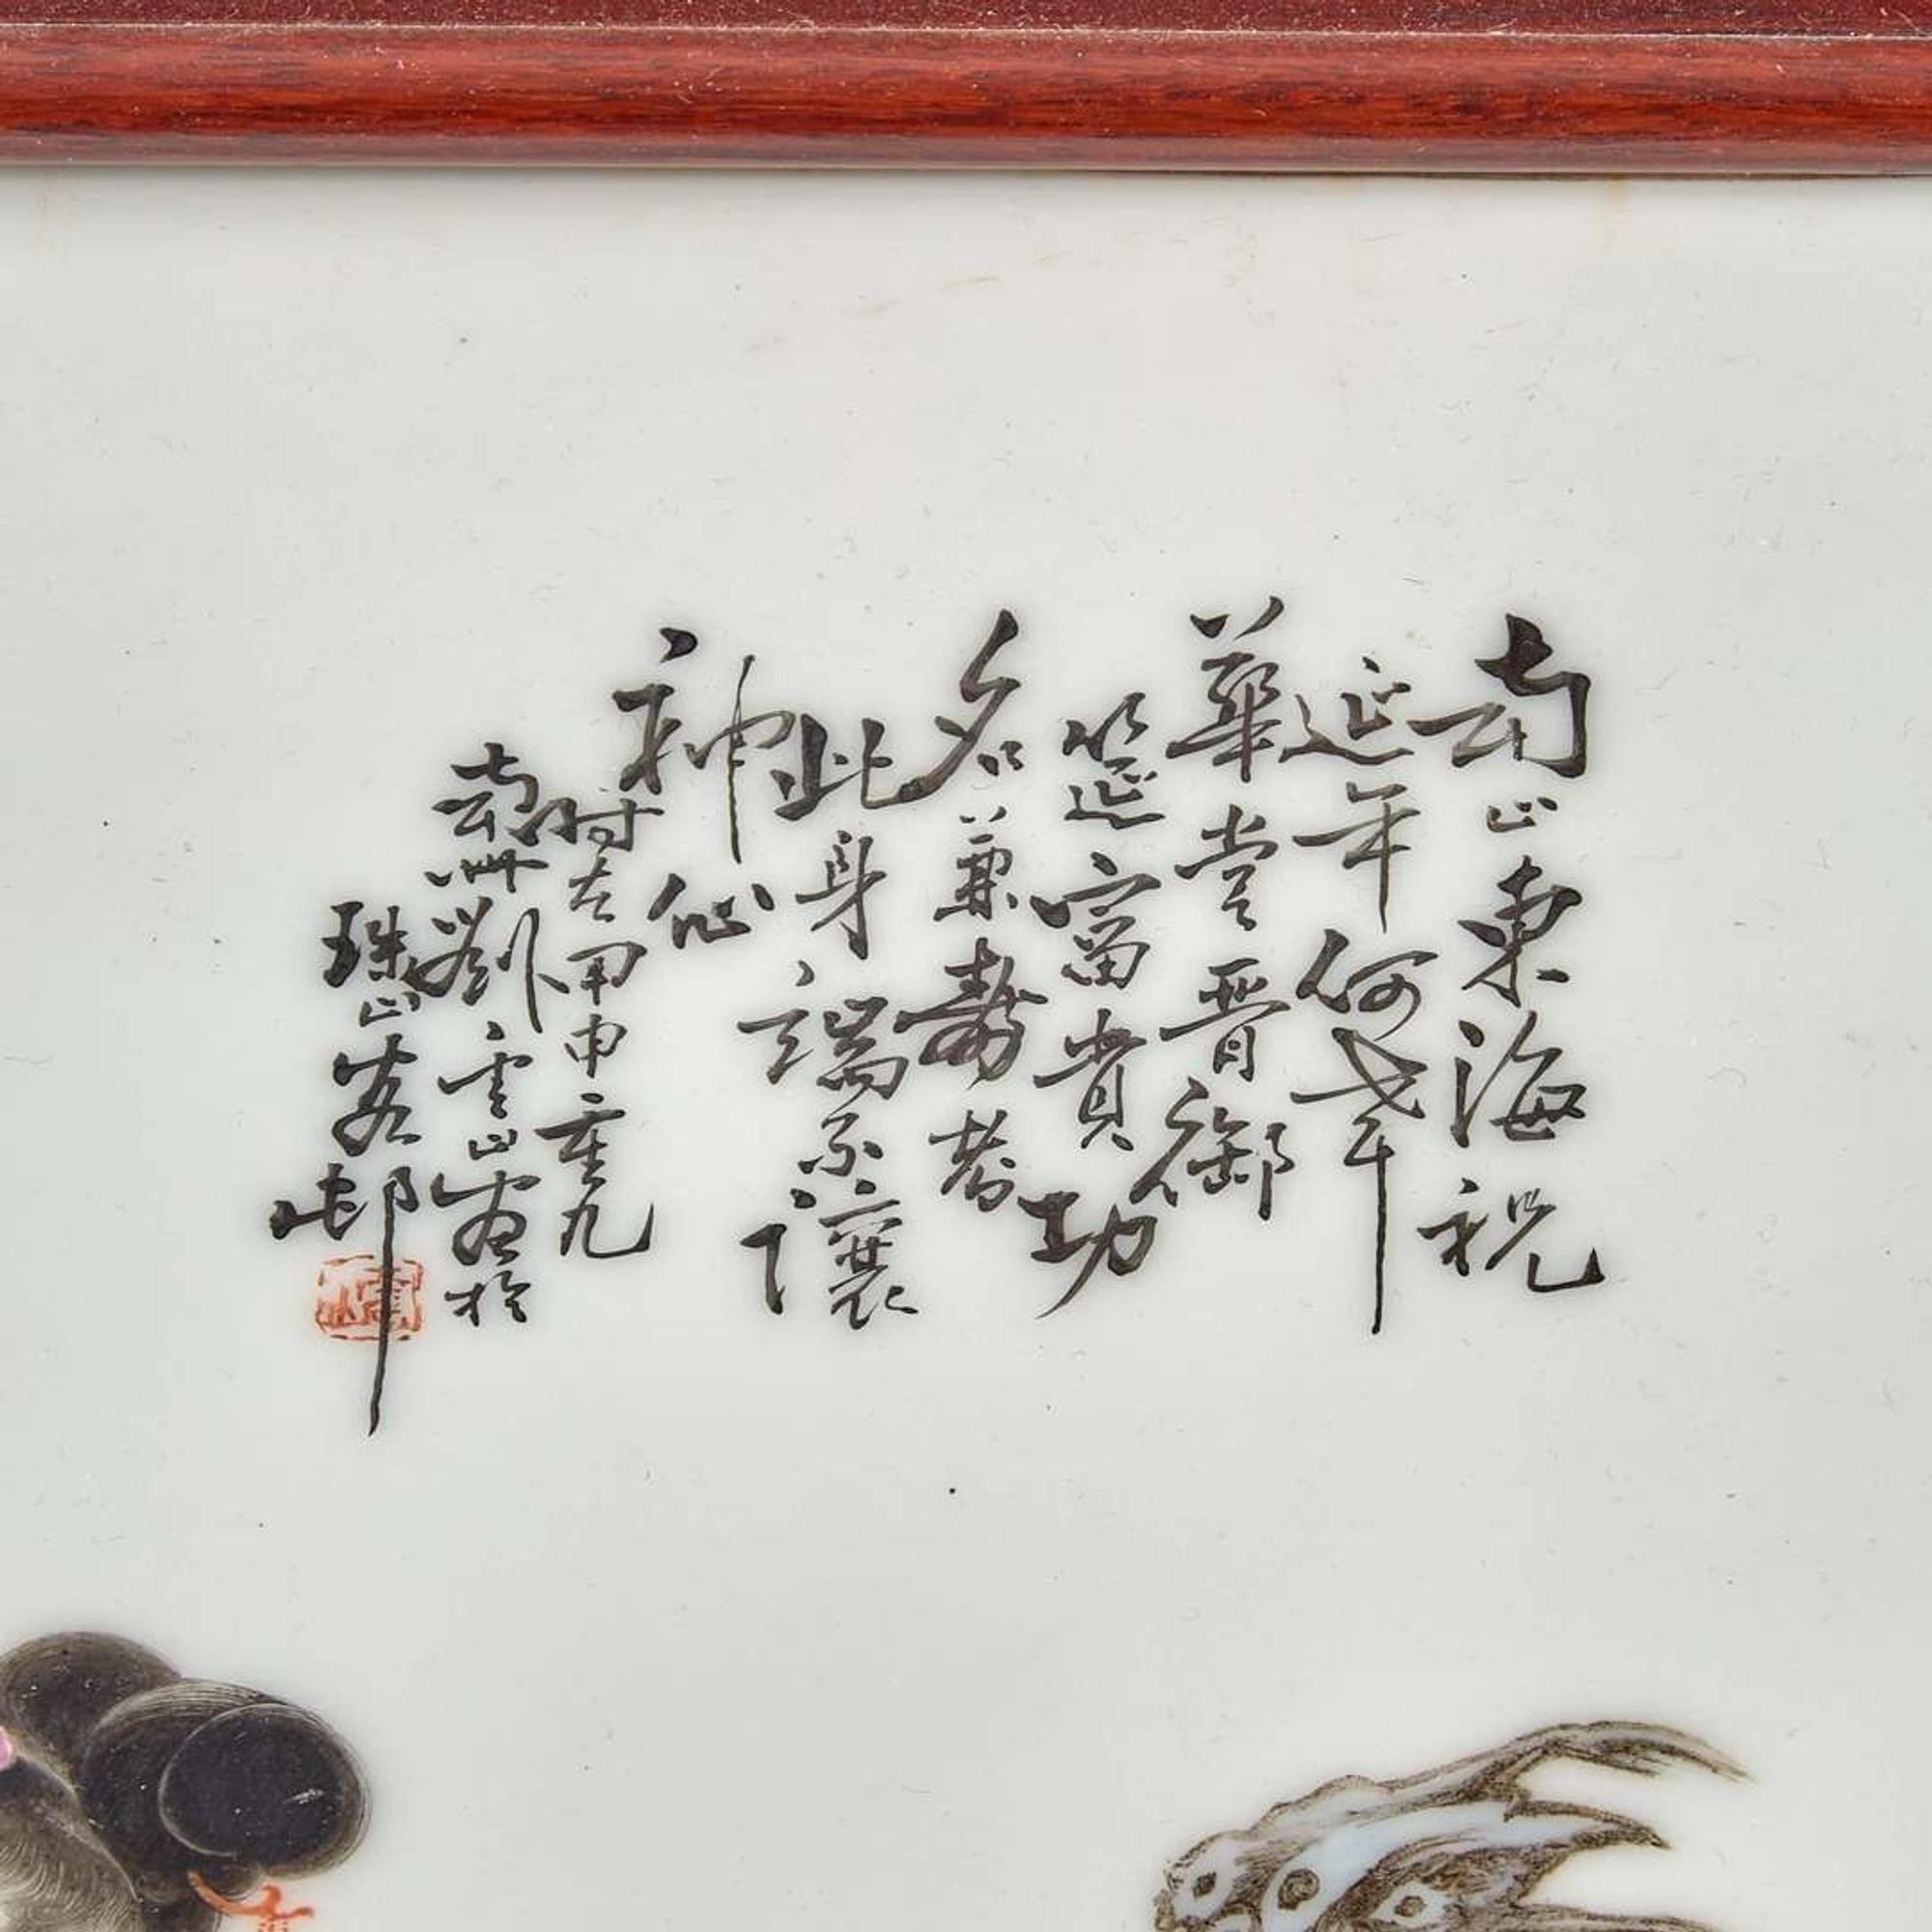 南山東海祝
延年何幸
華堂晋御
筵富貴功
名兼壽考
此身端不讓
神仙
时在甲申重九
南州劉雲山畫於
珠山客邨